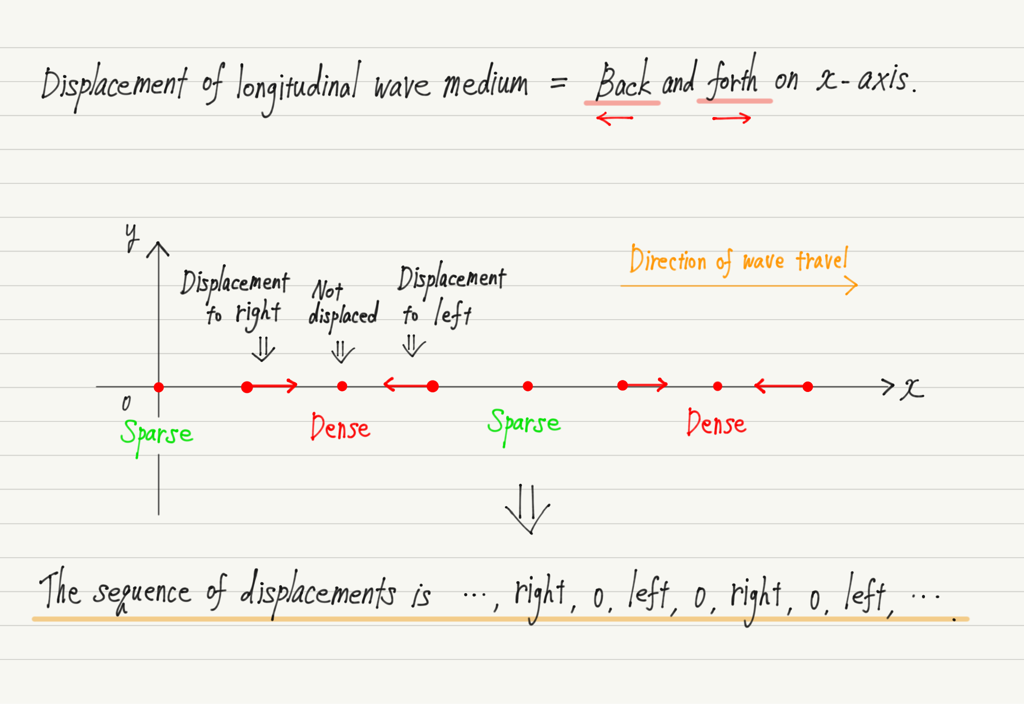 Displacement of longitudinal wave medium = Back and forth on x-axis.
y
Direction of wave travel
Displacement
to right
Not
displaced
Displacement
to left
0
x
Sparse
Dense
Sparse
Dense
The sequence of displacements is ..., right, 0, left, 0, right, 0, left, ... .